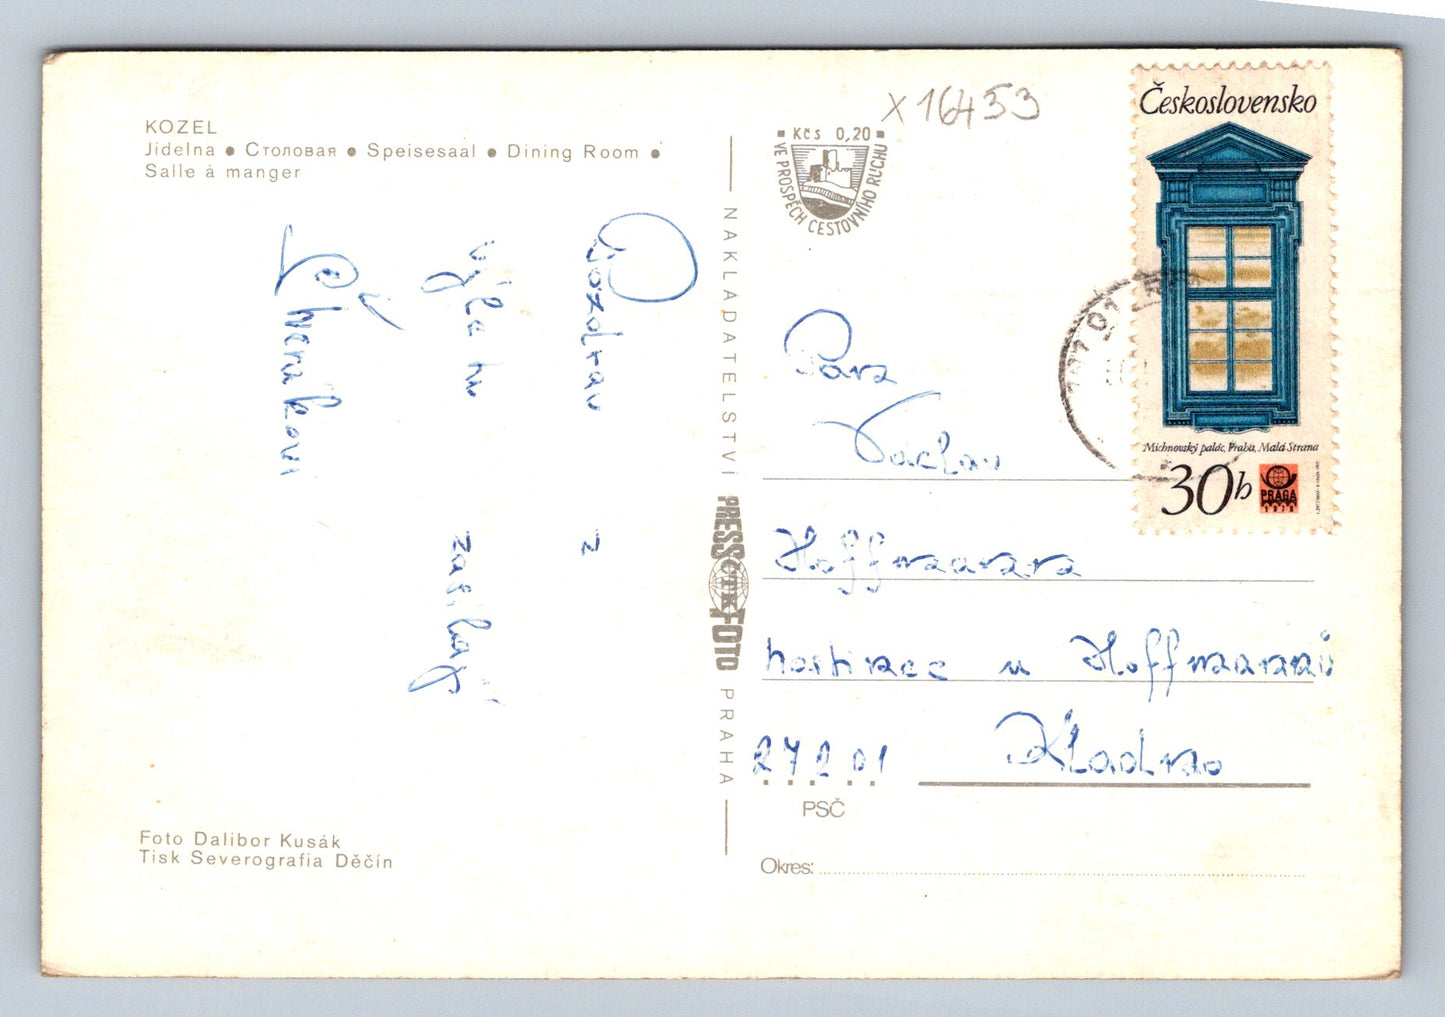 KOZEL
Jídelna • Столовая • Speisesaal • Dining Room •
Salle à manger
Pozdrav z
výletu zasílají
Foto Dalibor Kusák
Tisk Severografia Děčín
NAKLADATELSTVÍ PRESSFOTO PRAHA
ČTK
X16453
Kčs 0,20
VE PROSPĚCH CESTOVNÍHO RUCHU
Československo
Michnovský palác, Praha, Malá Strana
30h
PRAGA
1978
Pan
Václav
Hoffmann
hostinec u Hoffmannů
272 01 Kladno
PSČ
Okres: